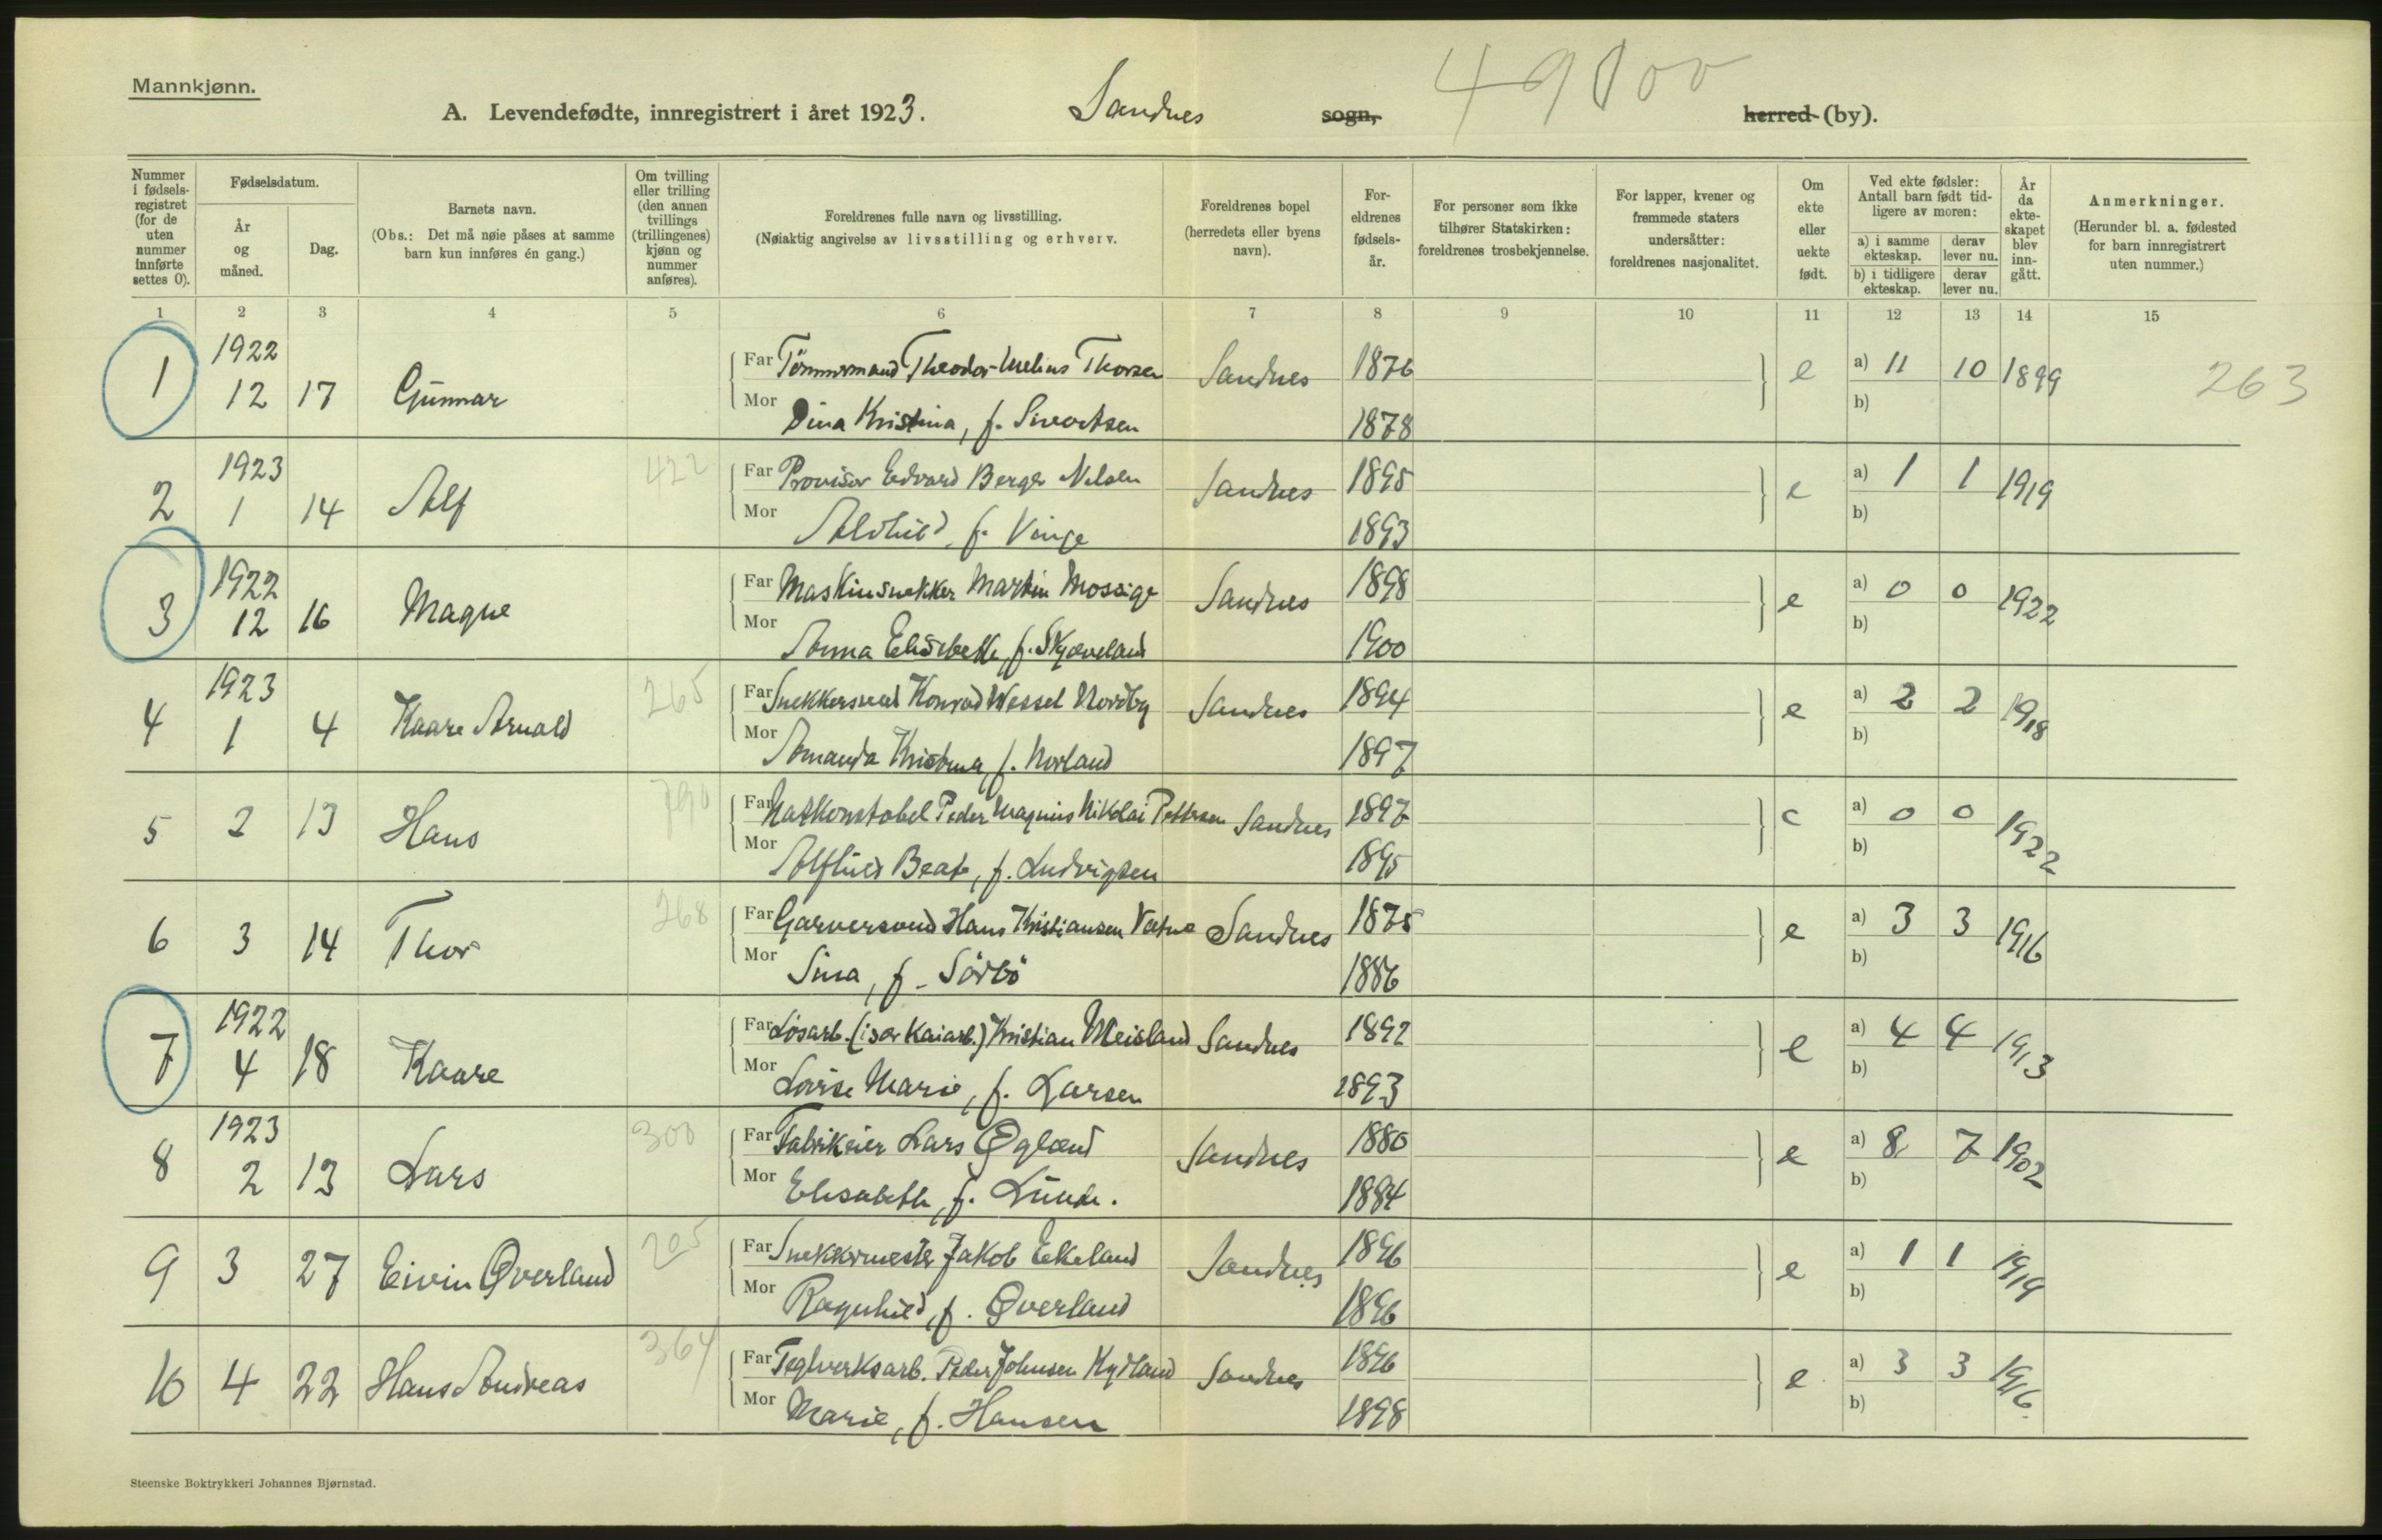 Mannkjønn.
A. Levendefødte, innregistrert i året 1923. Sandnes sogn, 49100 herred (by).
Nummer i fødsels-registret (for de uten nummer innførte settes 0).
Fødselsdatum.
År og måned.
Dag.
Barnets navn.
(Obs.: Det må nøie påses at samme barn kun innføres én gang.)
Om tvilling eller trilling (den annen tvillings (trillingenes) kjønn og nummer anføres).
Foreldrenes fulle navn og livsstilling.
(Nøiaktig angivelse av livsstilling og erhverv.
Foreldrenes bopel (herredets eller byens navn).
For-eldrenes fødsels-år.
For personer som ikke tilhører Statskirken: foreldrenes trosbekjennelse.
For lapper, kvener og fremmede staters undersåtter: foreldrenes nasjonalitet.
Om ekte eller uekte født.
Ved ekte fødsler: Antall barn født tid-ligere av moren:
a) i samme ekteskap. derav lever nu.
b) i tidligere ekteskap. derav lever nu.
År da ekte-skapet blev inn-gått.
Anmerkninger.
(Herunder bl. a. fødested for barn innregistrert uten nummer.)
1 2 3 4 5 6 7 8 9 10 11 12 13 14 15
1 1922 12 17 Gunnar Far Tömmermand Theodor Melius Thorsen Sandnes 1876 e a) 11 10 1899 263
Mor Dina Kristina, f. Sivertsen 1878 b)
2 1923 1 14 Alf 422 Far Provisor Edvard Berger Nilsen Sandnes 1895 e a) 1 1 1919
Mor Alvhild, f. Vinge 1893 b)
3 1922 12 16 Magne Far Maskinsnekker Martin Mossige Sandnes 1898 e a) 0 0 1922
Mor Anna Elisabeth, f. Skjæveland 1900 b)
4 1923 1 4 Kaare Arnold 265 Far Snekkersvend Konrad Wessel Nordby Sandnes 1894 e a) 2 2 1918
Mor Amanda Kristina, f. Norland 1897 b)
5 2 13 Hans 790 Far Natkonstabel Peder Magnus Nikolai Pettersen Sandnes 1897 e a) 0 0 1922
Mor Alfhild Beate, f. Ludvigsen 1895 b)
6 3 14 Thor 268 Far Garversvend Hans Kristiansen Vatne Sandnes 1875 e a) 3 3 1916
Mor Sina, f. Sörbö 1886 b)
7 1922 4 18 Kaare Far Løsarb. (især kaiarb.) Kristian Meisland Sandnes 1892 e a) 4 4 1913
Mor Lovise Marie, f. Larsen 1893 b)
8 1923 2 13 Lars 300 Far Fabrikeier Lars Øglænd Sandnes 1880 e a) 8 7 1902
Mor Elisabeth, f. Lunde. 1884 b)
9 3 27 Eivin Øverland 205 Far Snekkermester Jakob Eikeland Sandnes 1896 e a) 1 1 1919
Mor Ragnhild, f. Øverland 1896 b)
10 4 22 Hans Andreas 364 Far Teglverksarb. Peder Johnsen Kydland Sandnes 1896 e a) 3 3 1916
Mor Marie, f. Hansen 1898 b)
Steenske Boktrykkeri Johannes Bjørnstad.